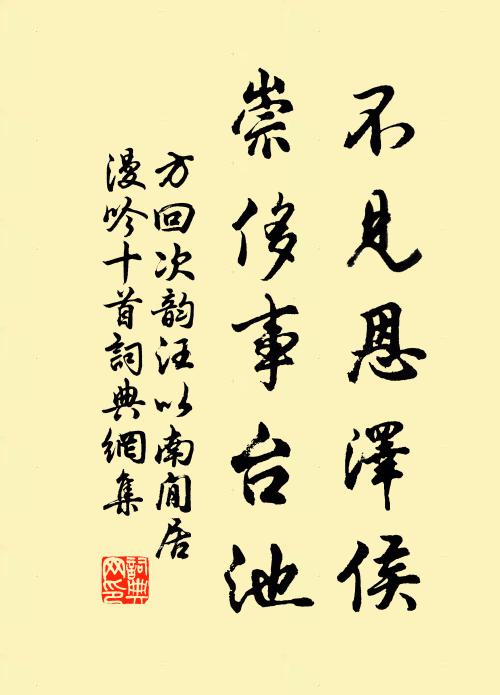 不見恩澤侯
崇侈事台池
方回次韵汪以南閒居
漫吟十首詞典網集
詞典网印